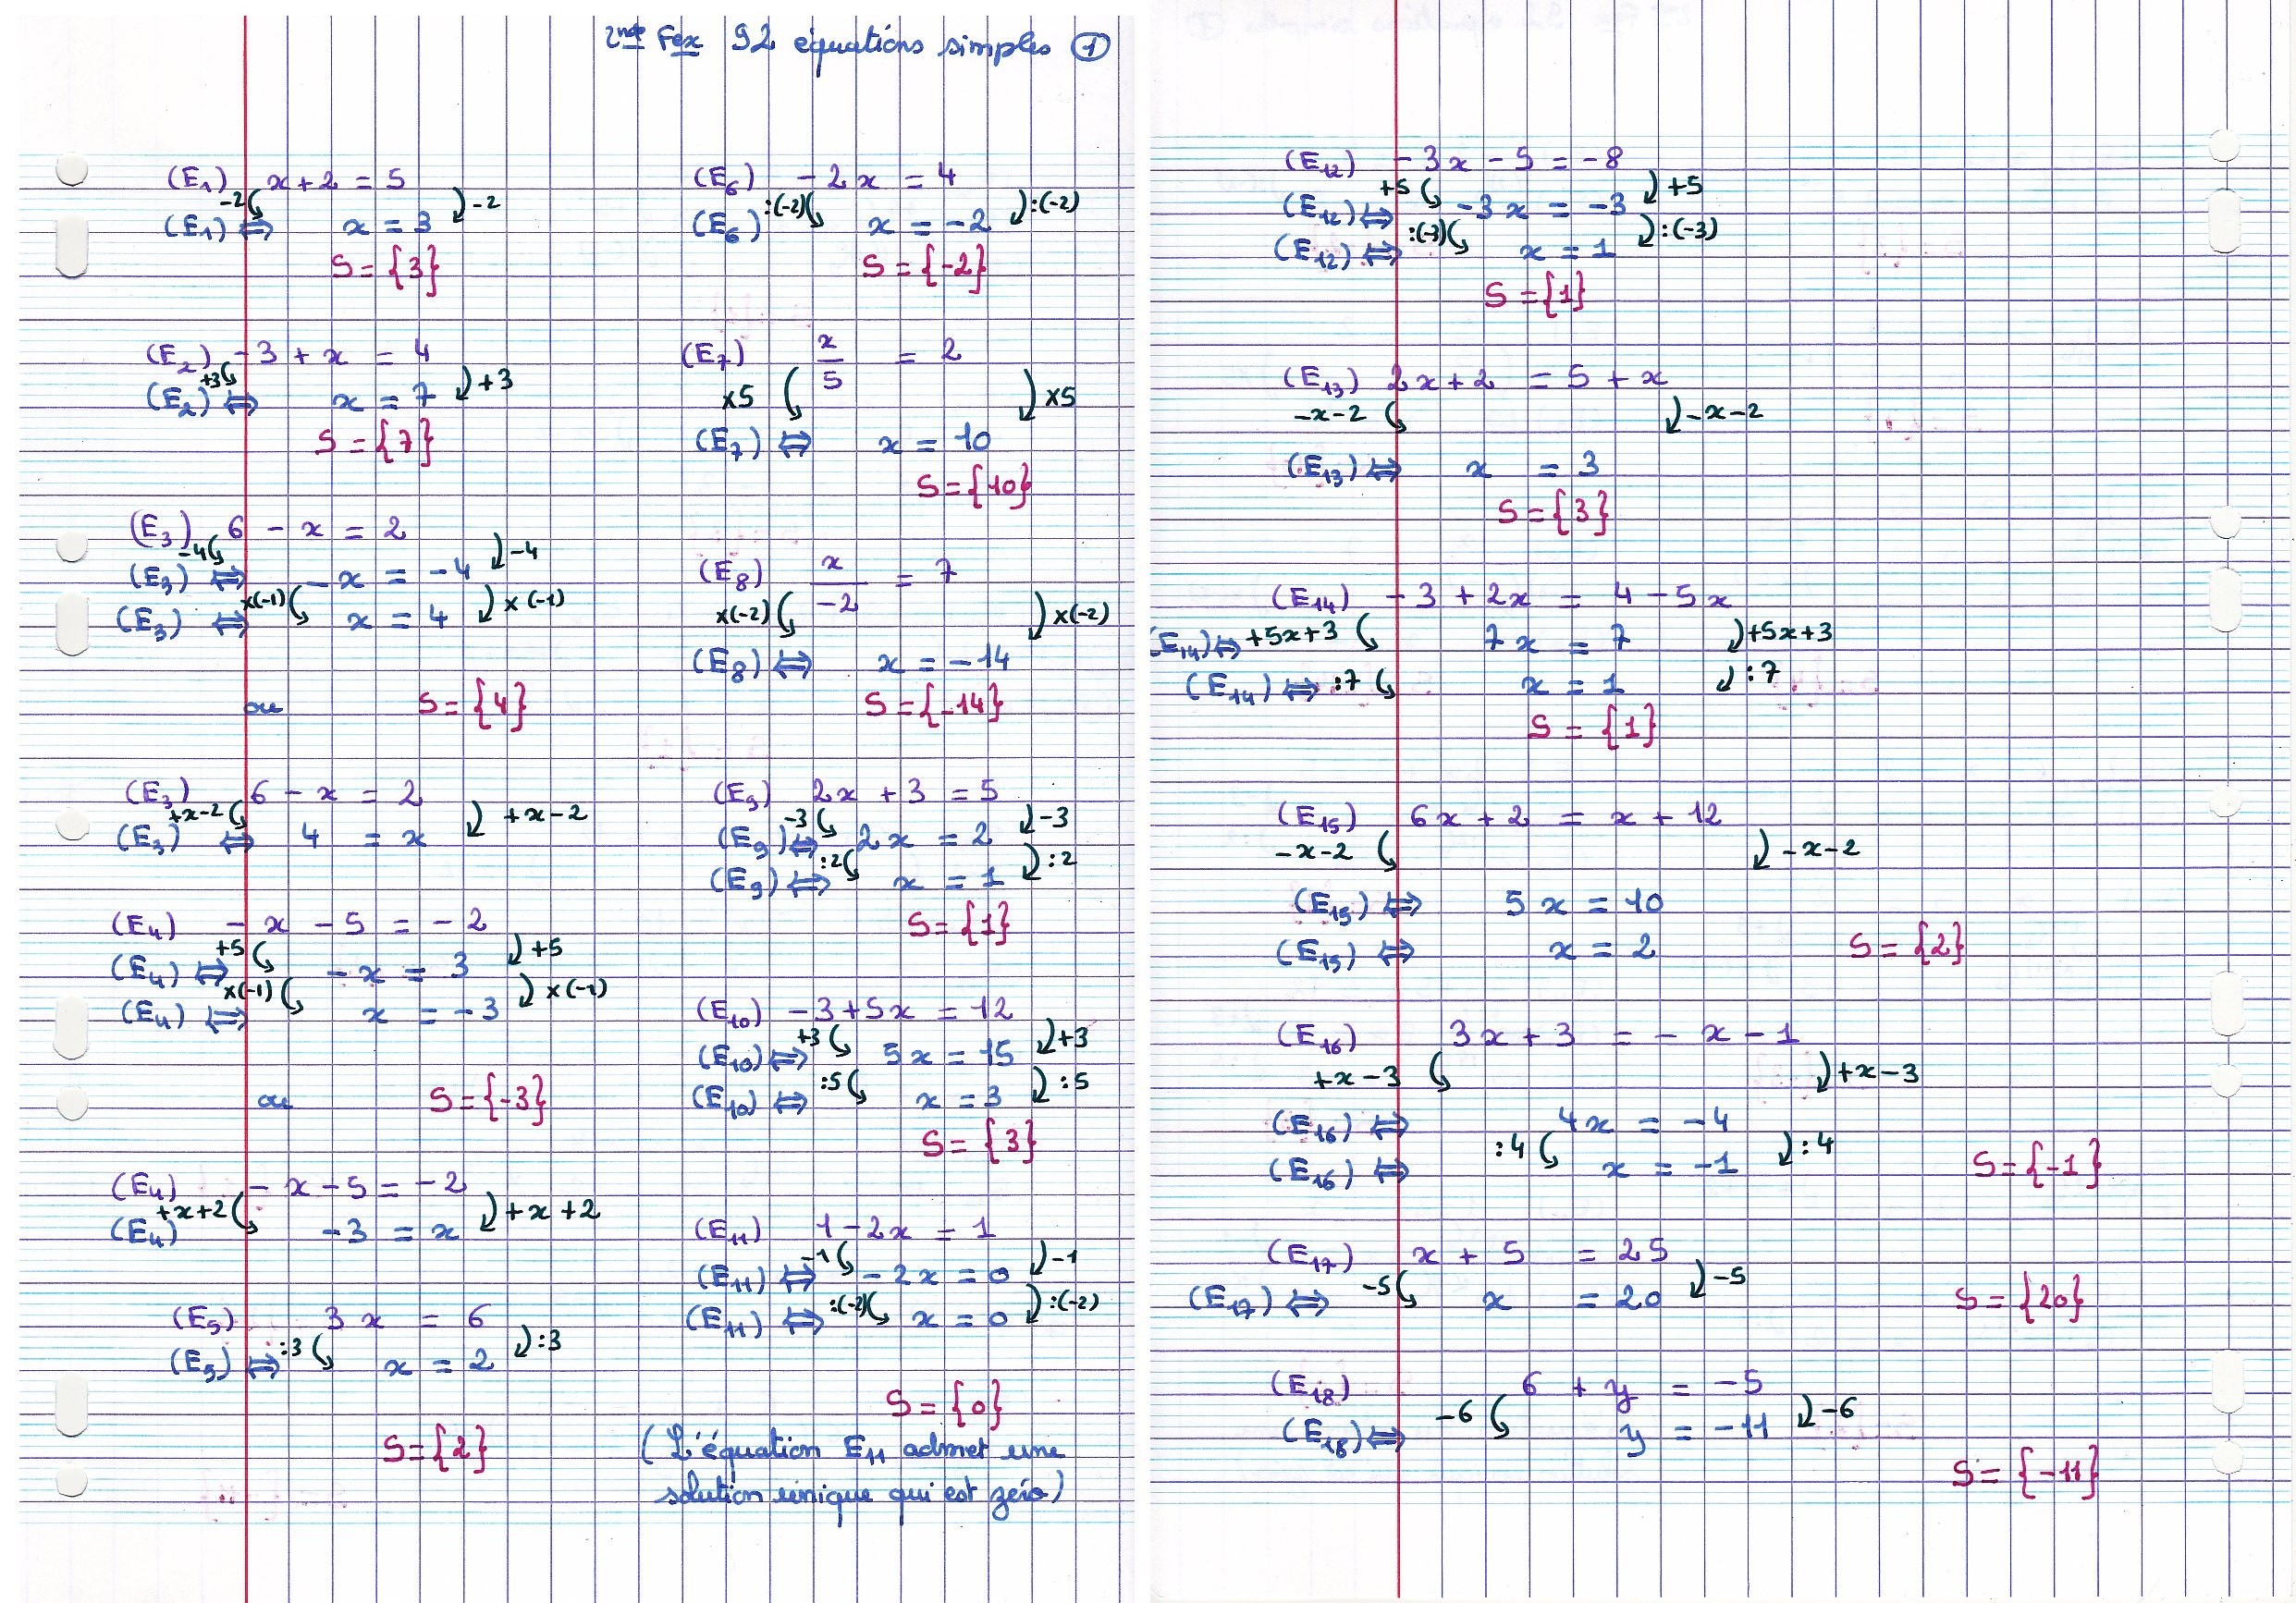 2nde Fex 92 équations simples ①
(E1) x + 2 = 5
-2 -2
(E1) ⇔ x = 3
S = {3}
(E2) -3 + x = 4
+3 +3
(E2) ⇔ x = 7
S = {7}
(E3) 6 - x = 2
-4 -4
(E3) ⇔ -x = -4
x(-1) x(-1)
(E3) ⇔ x = 4
ou S = {4}
(E3) 6 - x = 2
+x-2 +x-2
(E3) ⇔ 4 = x
(E4) -x - 5 = -2
+5 +5
(E4) ⇔ -x = 3
x(-1) x(-1)
(E4) ⇔ x = -3
ou S = {-3}
(E4) -x - 5 = -2
+x+2 +x+2
(E4) -3 = x
(E5) 3x = 6
:3 :3
(E5) ⇔ x = 2
S = {2}
(E6) -2x = 4
:(-2) :(-2)
(E6) x = -2
S = {-2}
(E7) x/5 = 2
x5 x5
(E7) ⇔ x = 10
S = {10}
(E8) x/-2 = 7
x(-2) x(-2)
(E8) ⇔ x = -14
S = {-14}
(E9) 2x + 3 = 5
-3 -3
(E9) ⇔ 2x = 2
:2 :2
(E9) ⇔ x = 1
S = {1}
(E10) -3 + 5x = 12
+3 +3
(E10) ⇔ 5x = 15
:5 :5
(E10) ⇔ x = 3
S = {3}
(E11) 1 - 2x = 1
-1 -1
(E11) ⇔ -2x = 0
:(-2) :(-2)
(E11) ⇔ x = 0
S = {0}
(L'équation E11 admet une
solution unique qui est zéro)
(E12) -3x - 5 = -8
+5 +5
(E12) ⇔ -3x = -3
:(-3) :(-3)
(E12) ⇔ x = 1
S = {1}
(E13) 2x + 2 = 5 + x
-x-2 -x-2
(E13) ⇔ x = 3
S = {3}
(E14) -3 + 2x = 4 - 5x
(E14) ⇔ +5x+3 7x = 7 +5x+3
(E14) ⇔ :7 x = 1 :7
S = {1}
(E15) 6x + 2 = x + 12
-x-2 -x-2
(E15) ⇔ 5x = 10
(E15) ⇔ x = 2 S = {2}
(E16) 3x + 3 = -x - 1
+x-3 +x-3
(E16) ⇔ 4x = -4
:4 :4
(E16) ⇔ x = -1 S = {-1}
(E17) x + 5 = 25
-5 -5
(E17) ⇔ x = 20 S = {20}
(E18) 6 + y = -5
-6 -6
(E18) ⇔ y = -11
S = {-11}